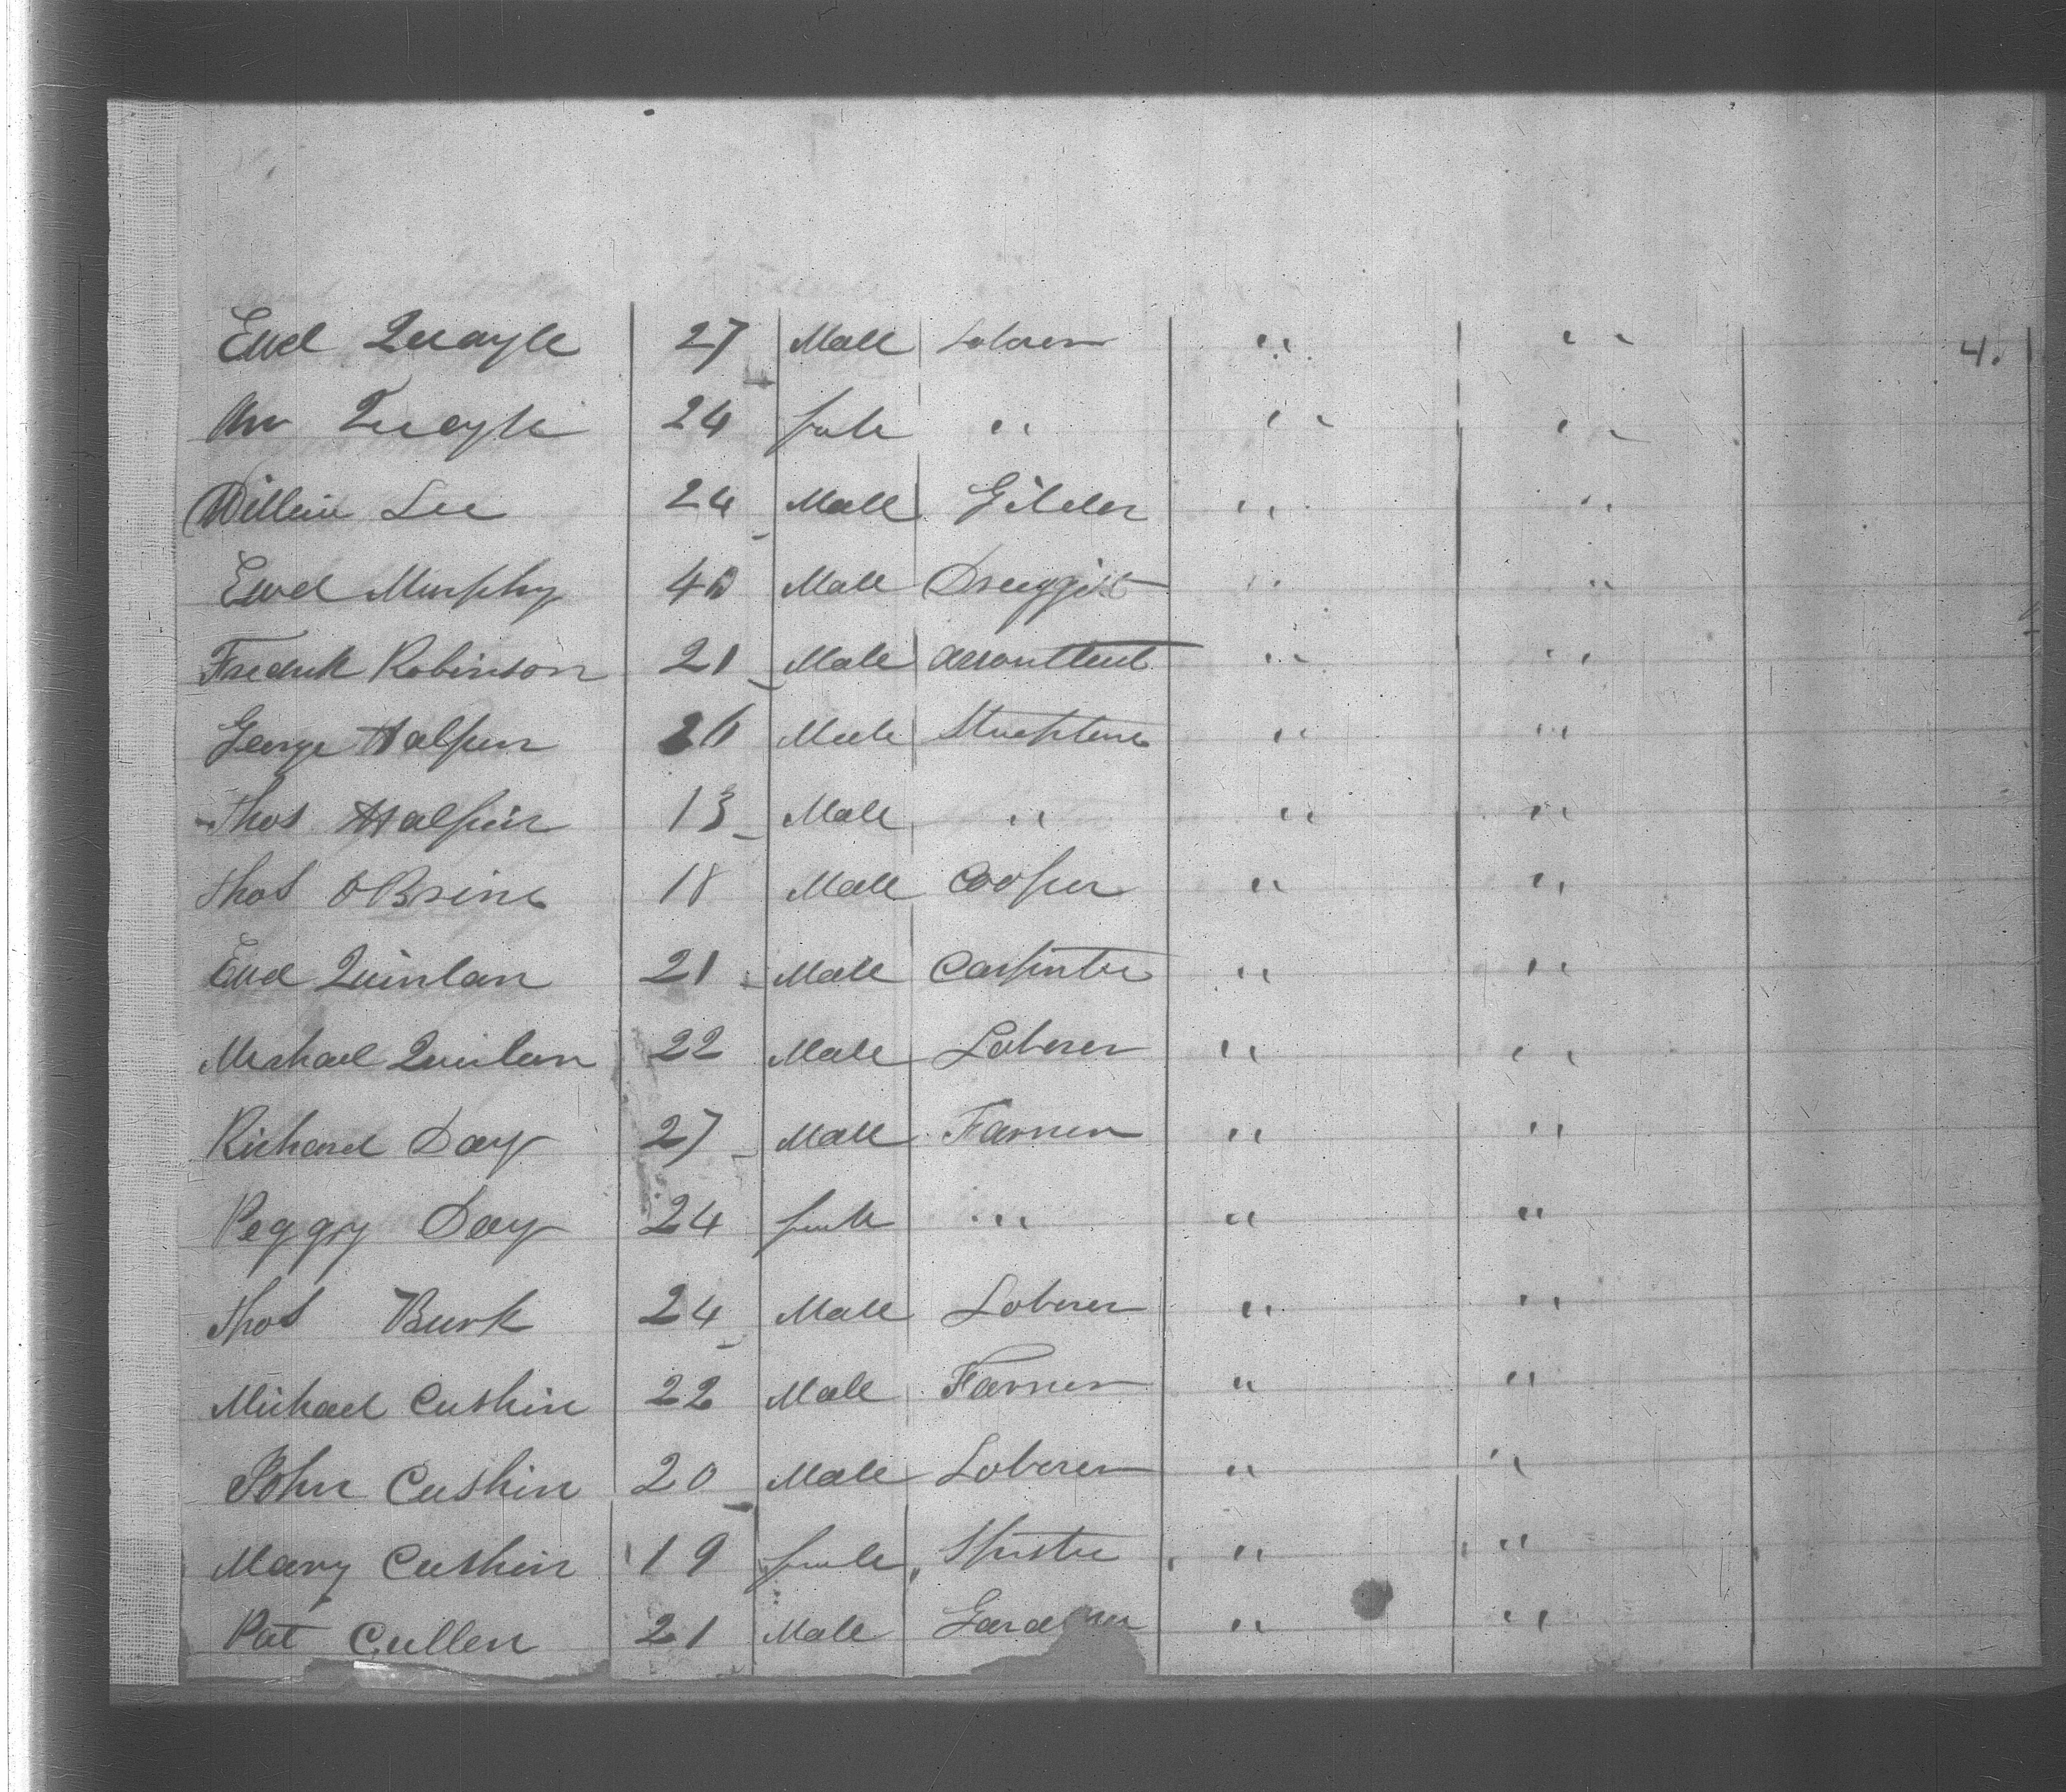 Ewd Quayle 27 Male Laborer " " 4.
Ann Quayle 24 female " " "
William Lee 24 Male Gilder " "
Ewd Murphy 40 Male Druggist " "
Fredrick Robinson 21 Male " "
George Halpen 26 Male " "
Thos Halpin 13 Male " " "
Thos OBrine 18 Male Cooper " "
Ewd Quinlan 21 Male Carpinter " "
Michael Quinlan 22 Male Laborer " "
Richard Day 27 Male Farmer " "
Peggy Day 24 female " " "
Thos Burk 24 Male Laborer " "
Michael Cushin 22 Male Farmer " "
John Cushin 20 Male Laborer " "
Mary Cushin 19 female Spinster " "
Pat Cullen 21 Male Gardener " "